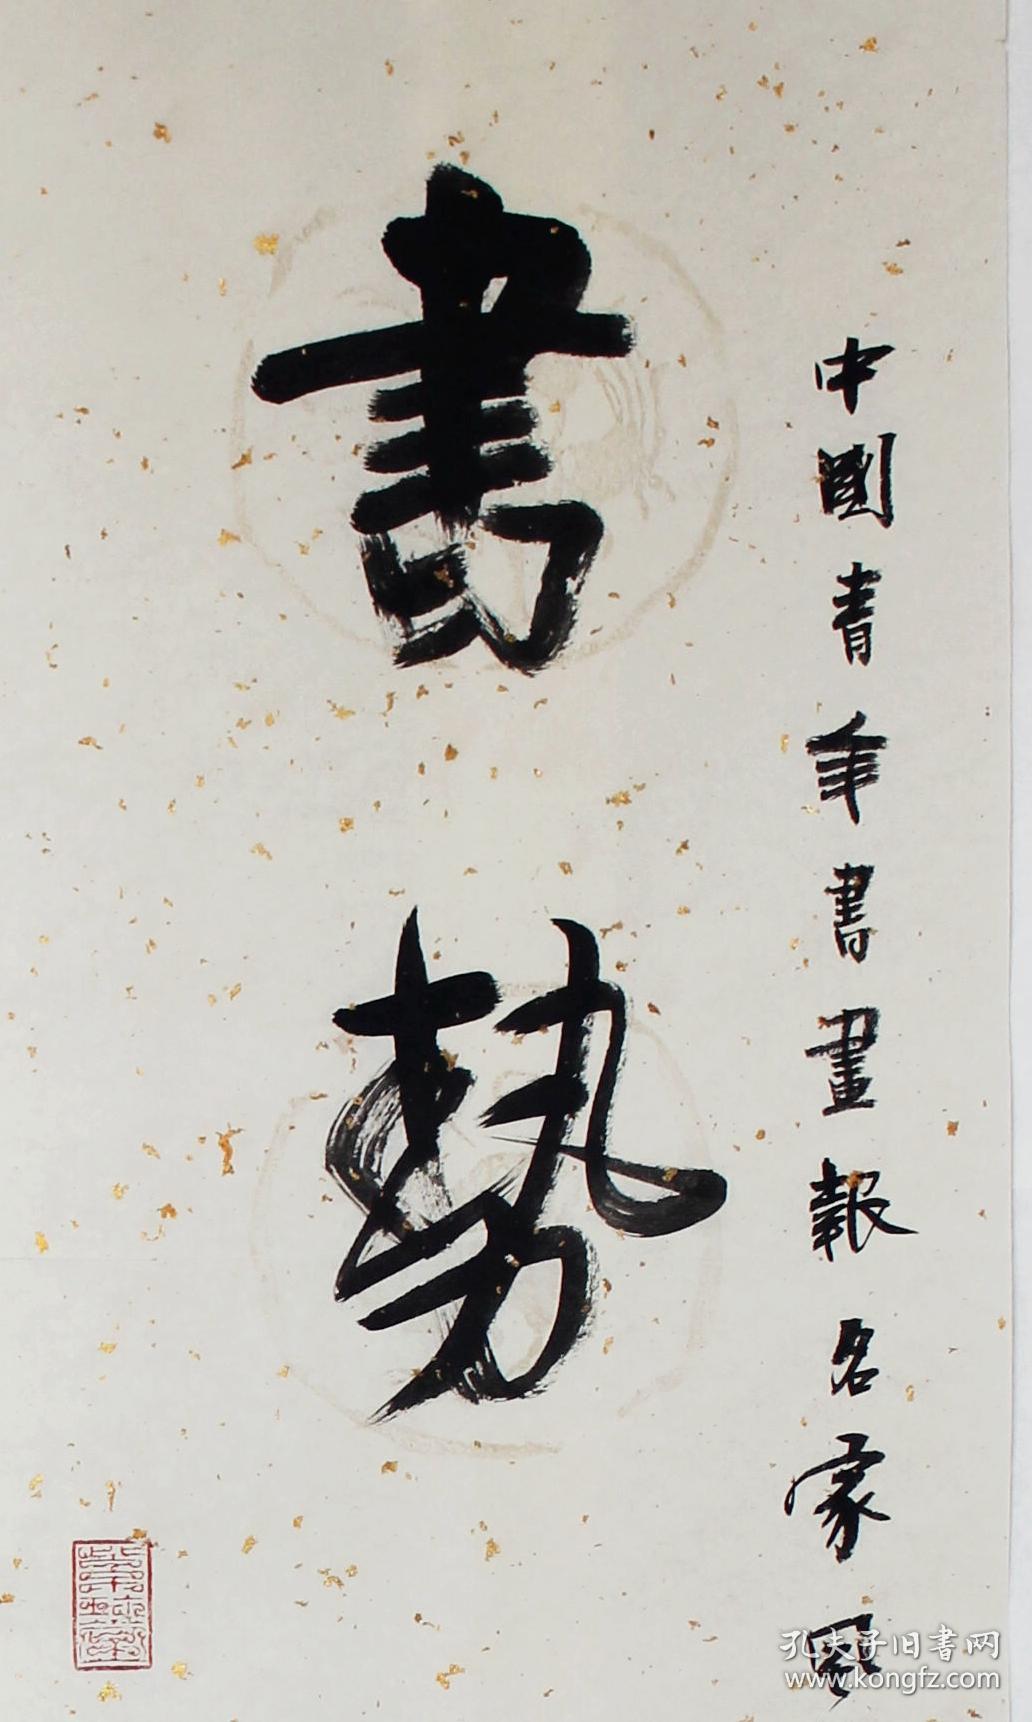 中國青年書畫報名家
書勢
孔夫子旧书网
www.kongfz.com